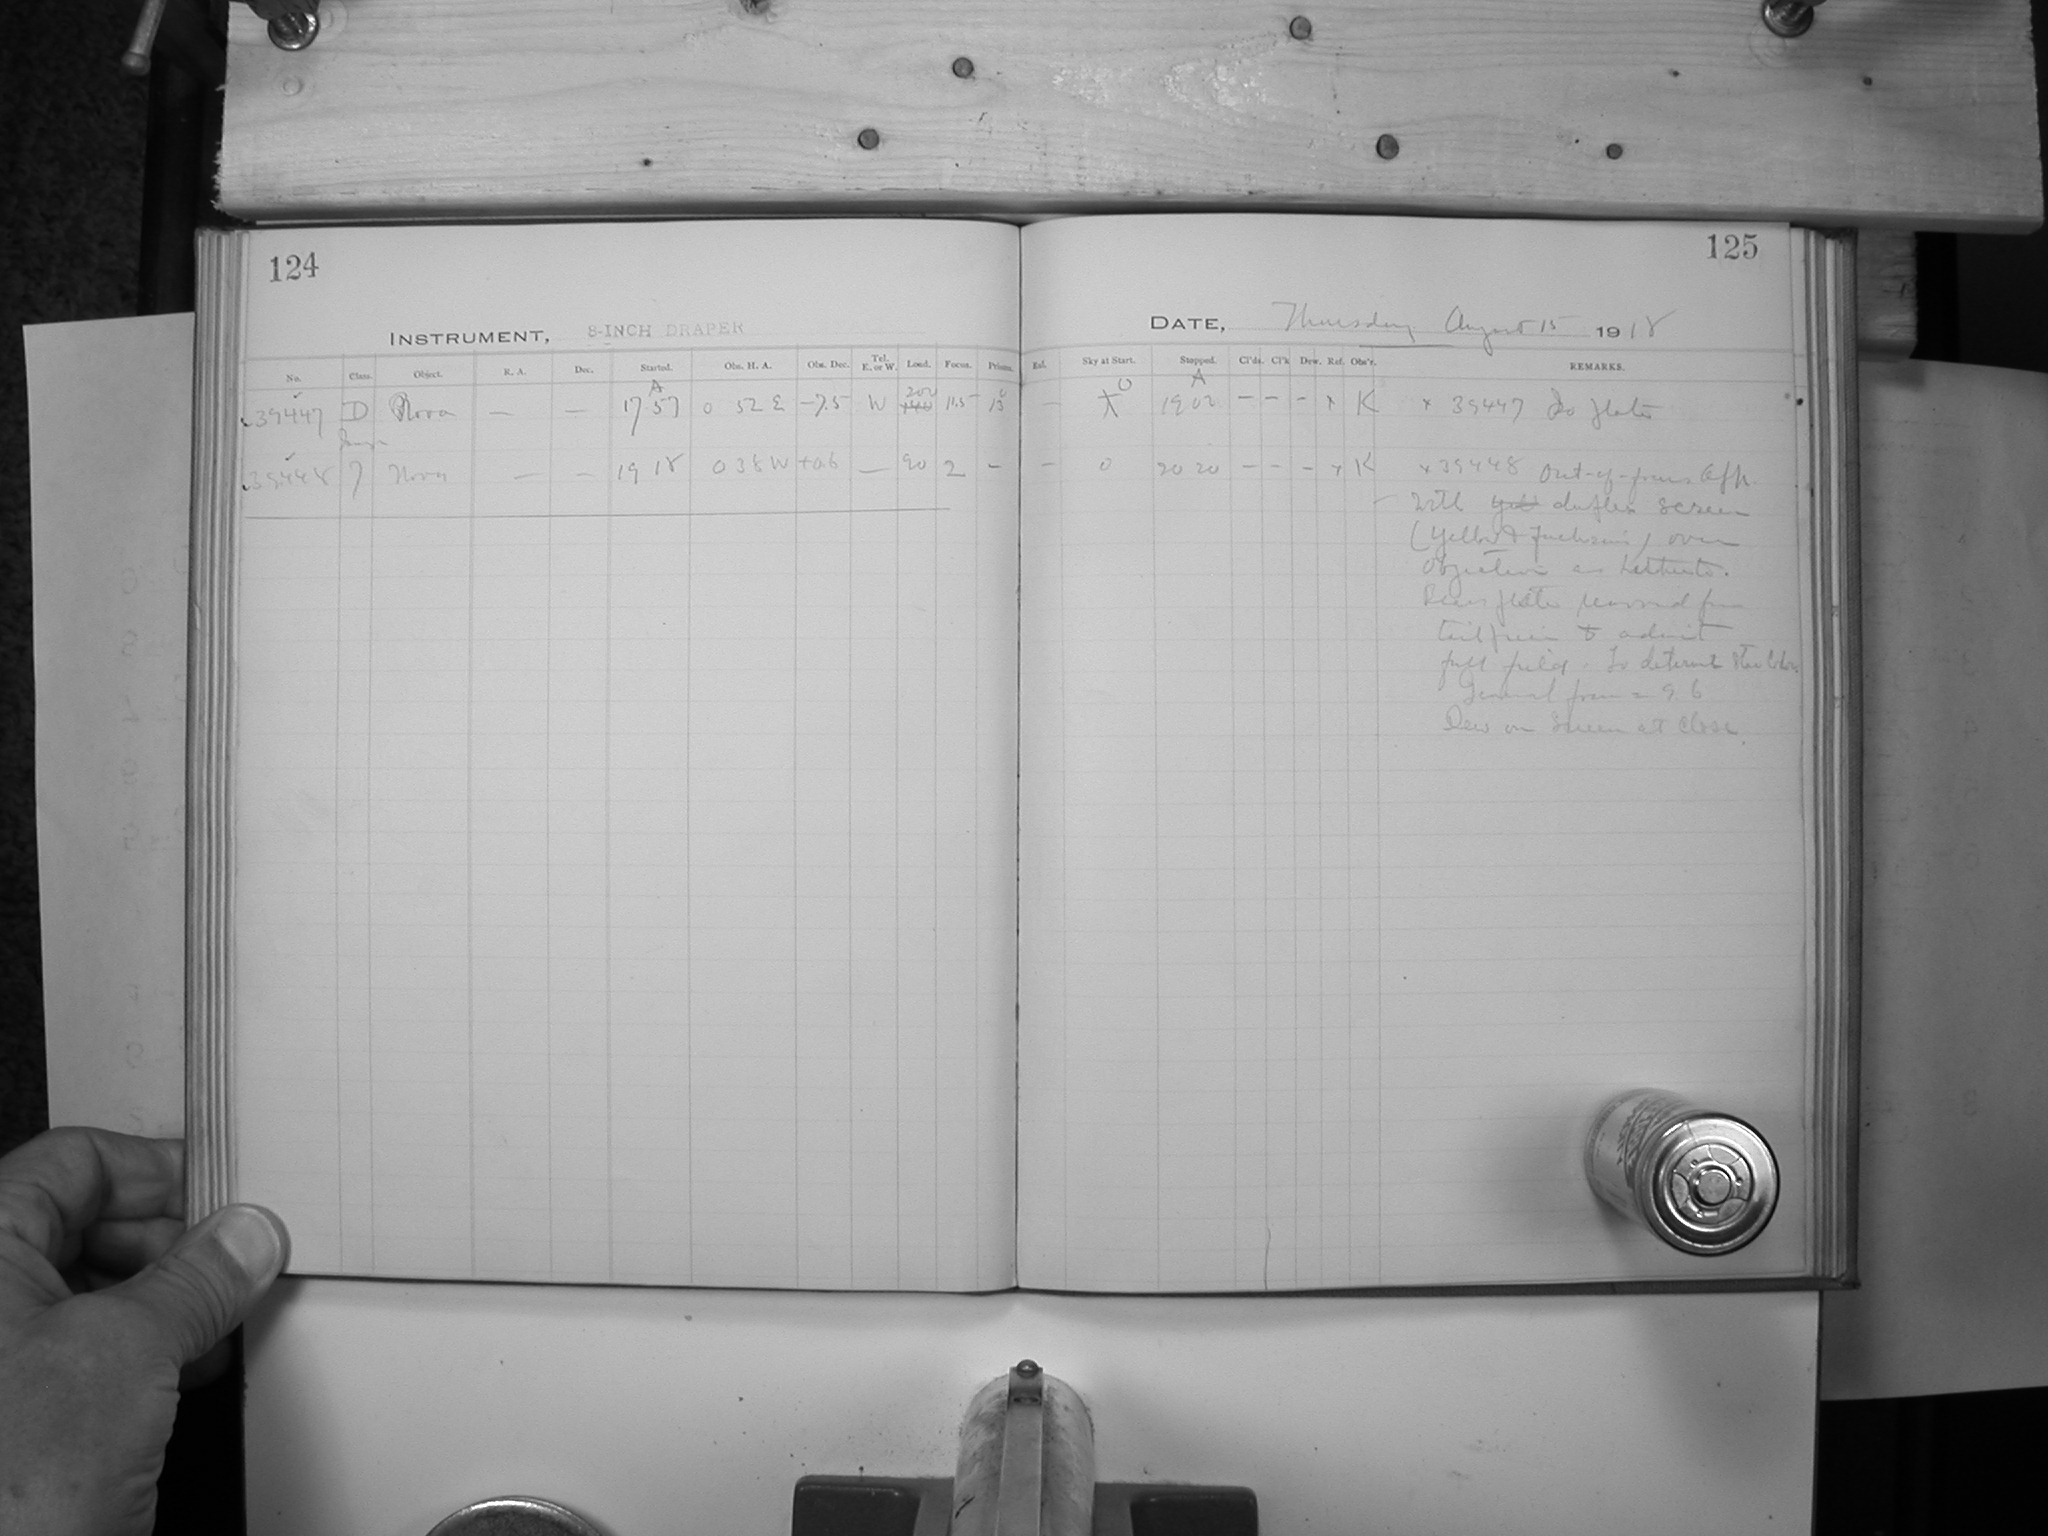 124
125
INSTRUMENT, 8-INCH DRAPER
DATE, Thursday August 15 1918
No. Class. Object. R. A. Dec. Started. Obs. H. A. Obs. Dec. Tel. E. or W. Load. Focus. Prisms. Exl. Sky at Start. Stopped. Cl'ds. Cl'k Dew. Ref. Obs'r. REMARKS.
39447 D Nova — — 17 57 0 52 E -7.5 W 200 11.5 — 1902 — — — x K x 39447 Do plate
39448 Nova — — 19 18 0 38 W +0.6 — 90 2 — — 0 20 20 — — — x K x 39448 Out-of-focus
with duplex screen
(Yellow & Fuchsin) over
Objective as hitherto.
plate removed from
tail piece to admit
full field. To determine
focus = 9.6
Dew on screen at close